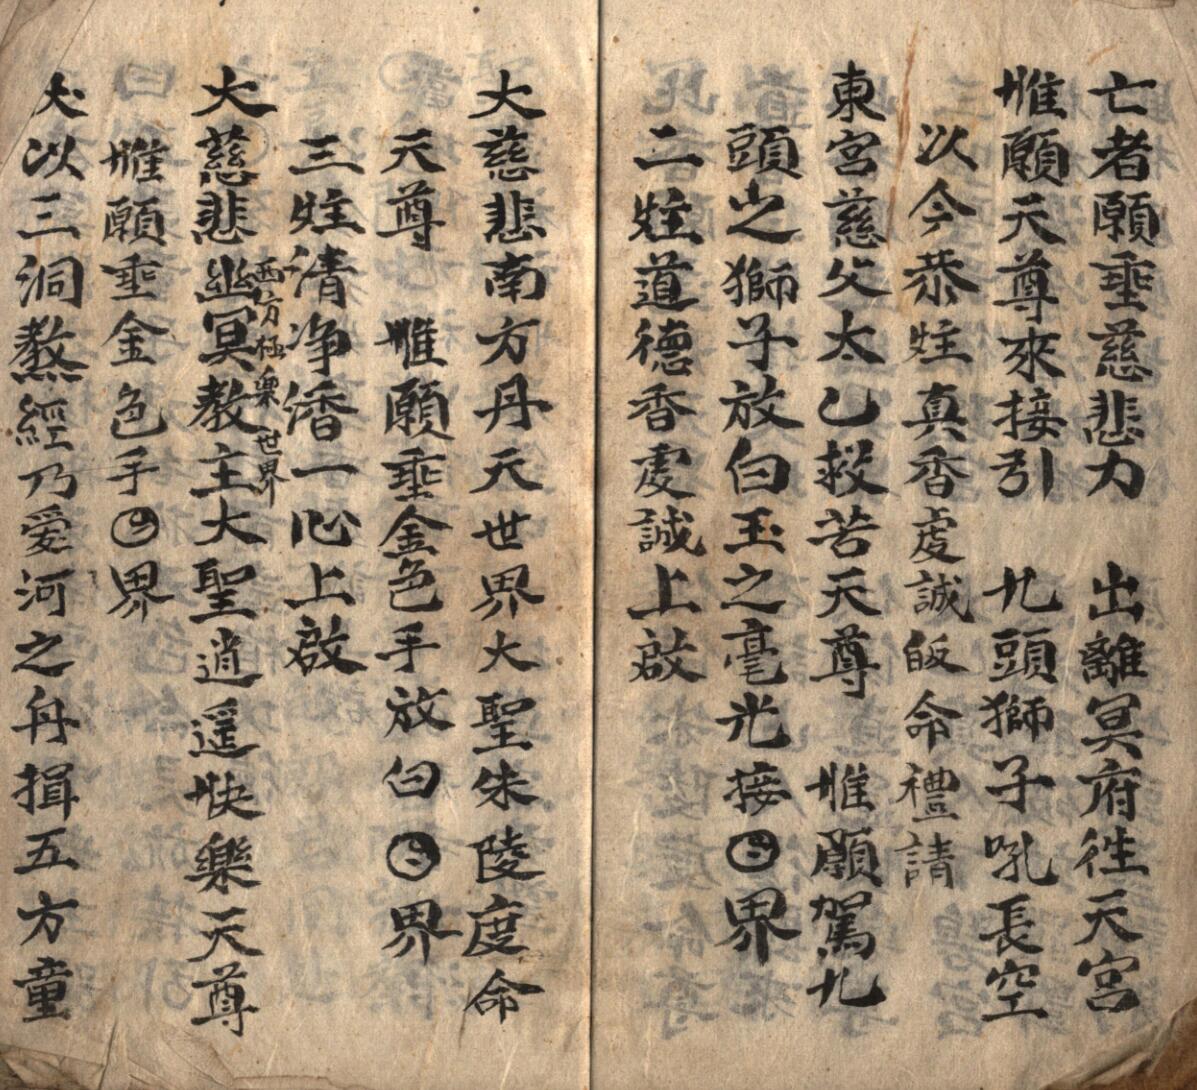 亡者願垂慈悲力　出離冥府徃天宮
惟願天尊來接引　九頭獅子吼長空
次今恭炷真香虔誠皈命禮請
東宮慈父太乙救苦天尊　惟願駕九
頭之獅子放白玉之毫光接界
二炷道德香虔誠上啟
大慈悲南方丹天世界大聖朱陵度命
天尊　惟願垂金色手放白界
三炷清净香一心上啟
西方極樂世界
大慈悲幽冥教主大聖逍遥快樂天尊
惟願垂金色手界
夫以三洞教經乃愛河之舟揖五方童